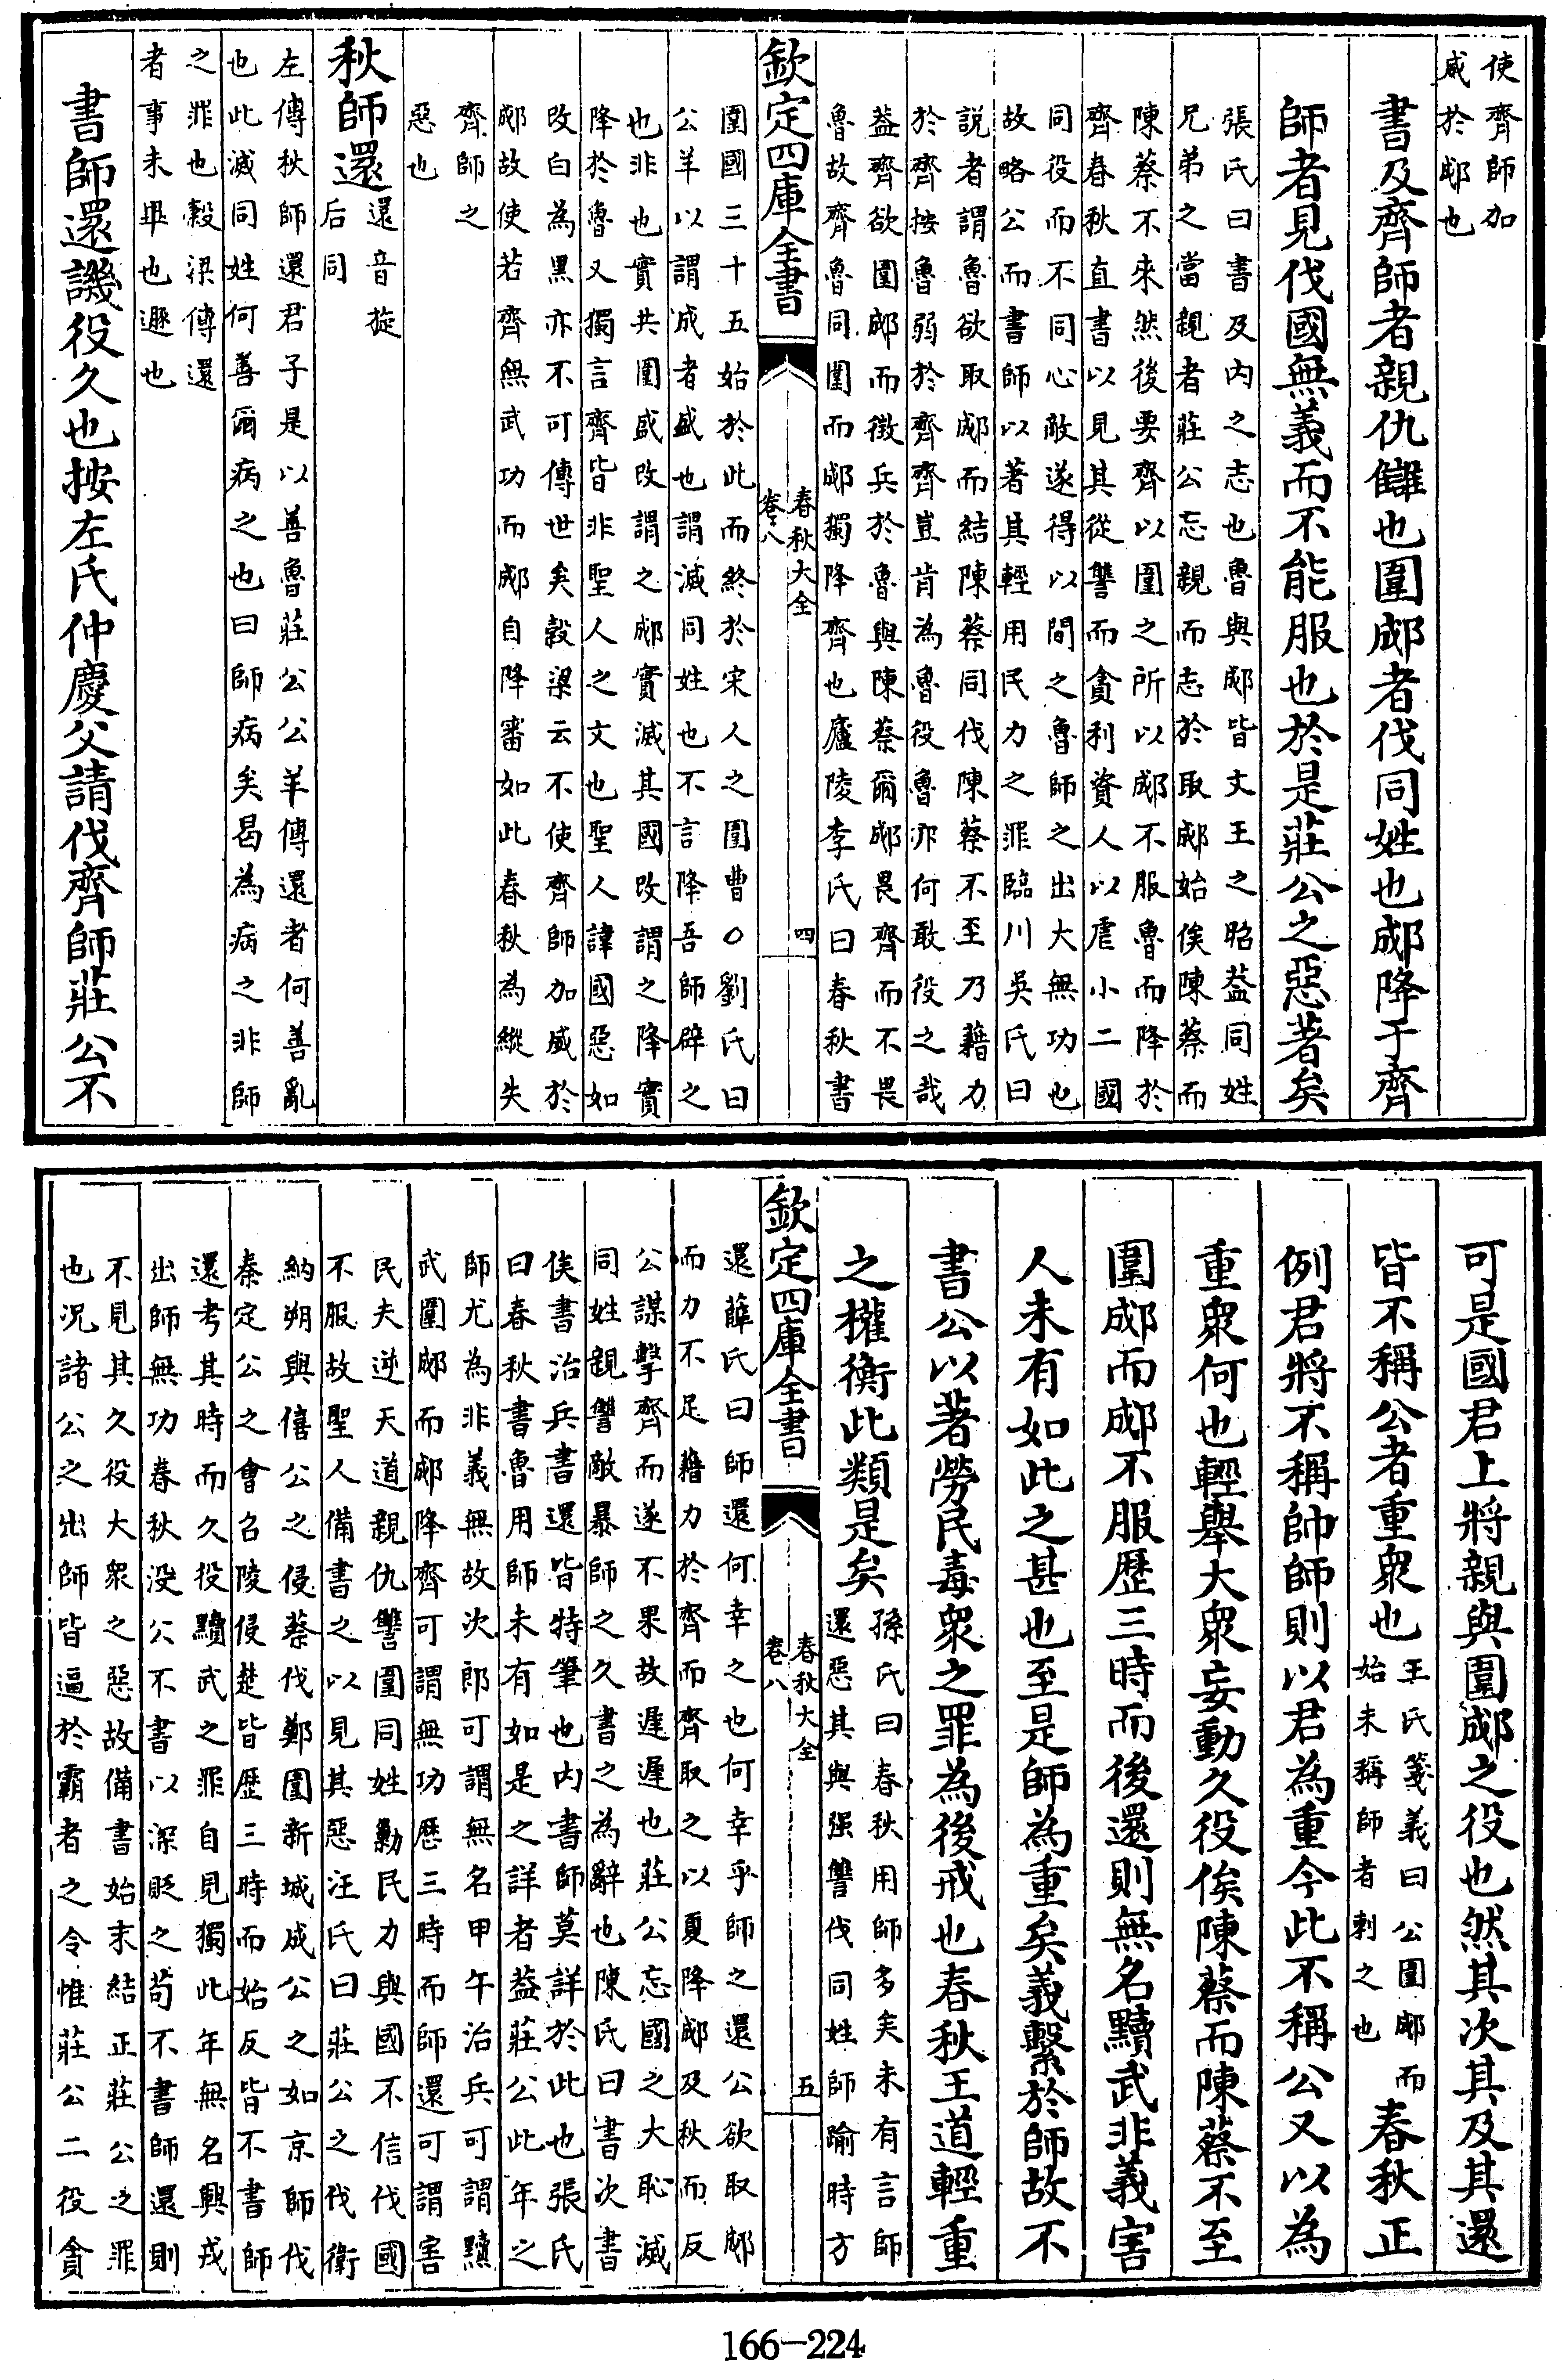 使齊師加
威於郕也
書及齊師者親仇讎也圍郕者伐同姓也郕降于齊
師者見伐國無義而不能服也於是莊公之惡著矣
張氏曰書及内之志也魯與郕皆文王之昭葢同姓
兄弟之當親者莊公忘親而志於取郕始俟陳蔡而
陳蔡不來然後要齊以圍之所以郕不服魯而降於
齊春秋直書以見其從讐而貪利資人以虐小二國
同役而不同心敵遂得以間之魯師之出大無功也
故略公而書師以著其輕用民力之罪臨川吳氏曰
説者謂魯欲取郕而結陳蔡同伐陳蔡不至乃藉力
於齊按魯弱於齊齊豈肯為魯役魯亦何敢役之哉
葢齊欲圍郕而徵兵於魯與陳蔡爾郕畏齊而不畏
魯故齊魯同圍而郕獨降齊也廬陵李氏曰春秋書
欽定四庫全書
春秋大全
卷八
四
圍國三十五始於此而終於宋人之圍曹○劉氏曰
公羊以謂成者盛也謂滅同姓也不言降吾師辟之
也非也實共圍盛改謂之郕實滅其國改謂之降實
降於魯又獨言齊皆非聖人之文也聖人諱國惡如
改白為黑亦不可傳世矣穀梁云不使齊師加威於
郕故使若齊無武功而郕自降審如此春秋為縱失
齊師之
惡也
秋師還
還音旋
后同
左傳秋師還君子是以善魯莊公公羊傳還者何善亂
也此滅同姓何善爾病之也曰師病矣曷為病之非師
之罪也穀梁傳還
者事未畢也遯也
書師還譏役久也按左氏仲慶父請伐齊師莊公不
可是國君上將親與圍郕之役也然其次其及其還
皆不稱公者重衆也
王氏箋義曰公圍郕而
始末稱師者刺之也
春秋正
例君將不稱帥師則以君為重今此不稱公又以為
重衆何也輕舉大衆妄動久役俟陳蔡而陳蔡不至
圍郕而郕不服歷三時而後還則無名黷武非義害
人未有如此之甚也至是師為重矣義繫於師故不
書公以著勞民毒衆之罪為後戒也春秋王道輕重
之權衡此類是矣
孫氏曰春秋用師多矣未有言師
還惡其與强讐伐同姓師踰時方
欽定四庫全書
春秋大全
卷八
五
還薛氏曰師還何幸之也何幸乎師之還公欲取郕
而力不足藉力於齊而齊取之以夏降郕及秋而反
公謀擊齊而遂不果故遲遲也莊公忘國之大恥滅
同姓親讐敵暴師之久書之為辭也陳氏曰書次書
俟書治兵書還皆特筆也内書師莫詳於此也張氏
曰春秋書魯用師未有如是之詳者葢莊公此年之
師尤為非義無故次郎可謂無名甲午治兵可謂黷
武圍郕而郕降齊可謂無功歷三時而師還可謂害
民夫逆天道親仇讐圍同姓勦民力與國不信伐國
不服故聖人備書之以見其惡汪氏曰莊公之伐衛
納朔與僖公之侵蔡伐鄭圍新城成公之如京師伐
秦定公之會召陵侵楚皆歷三時而始反皆不書師
還考其時而久役黷武之罪自見獨此年無名興戎
出師無功春秋没公不書以深貶之苟不書師還則
不見其久役大衆之惡故備書始末結正莊公之罪
也况諸公之出師皆逼於霸者之令惟莊公二役貪
166-224